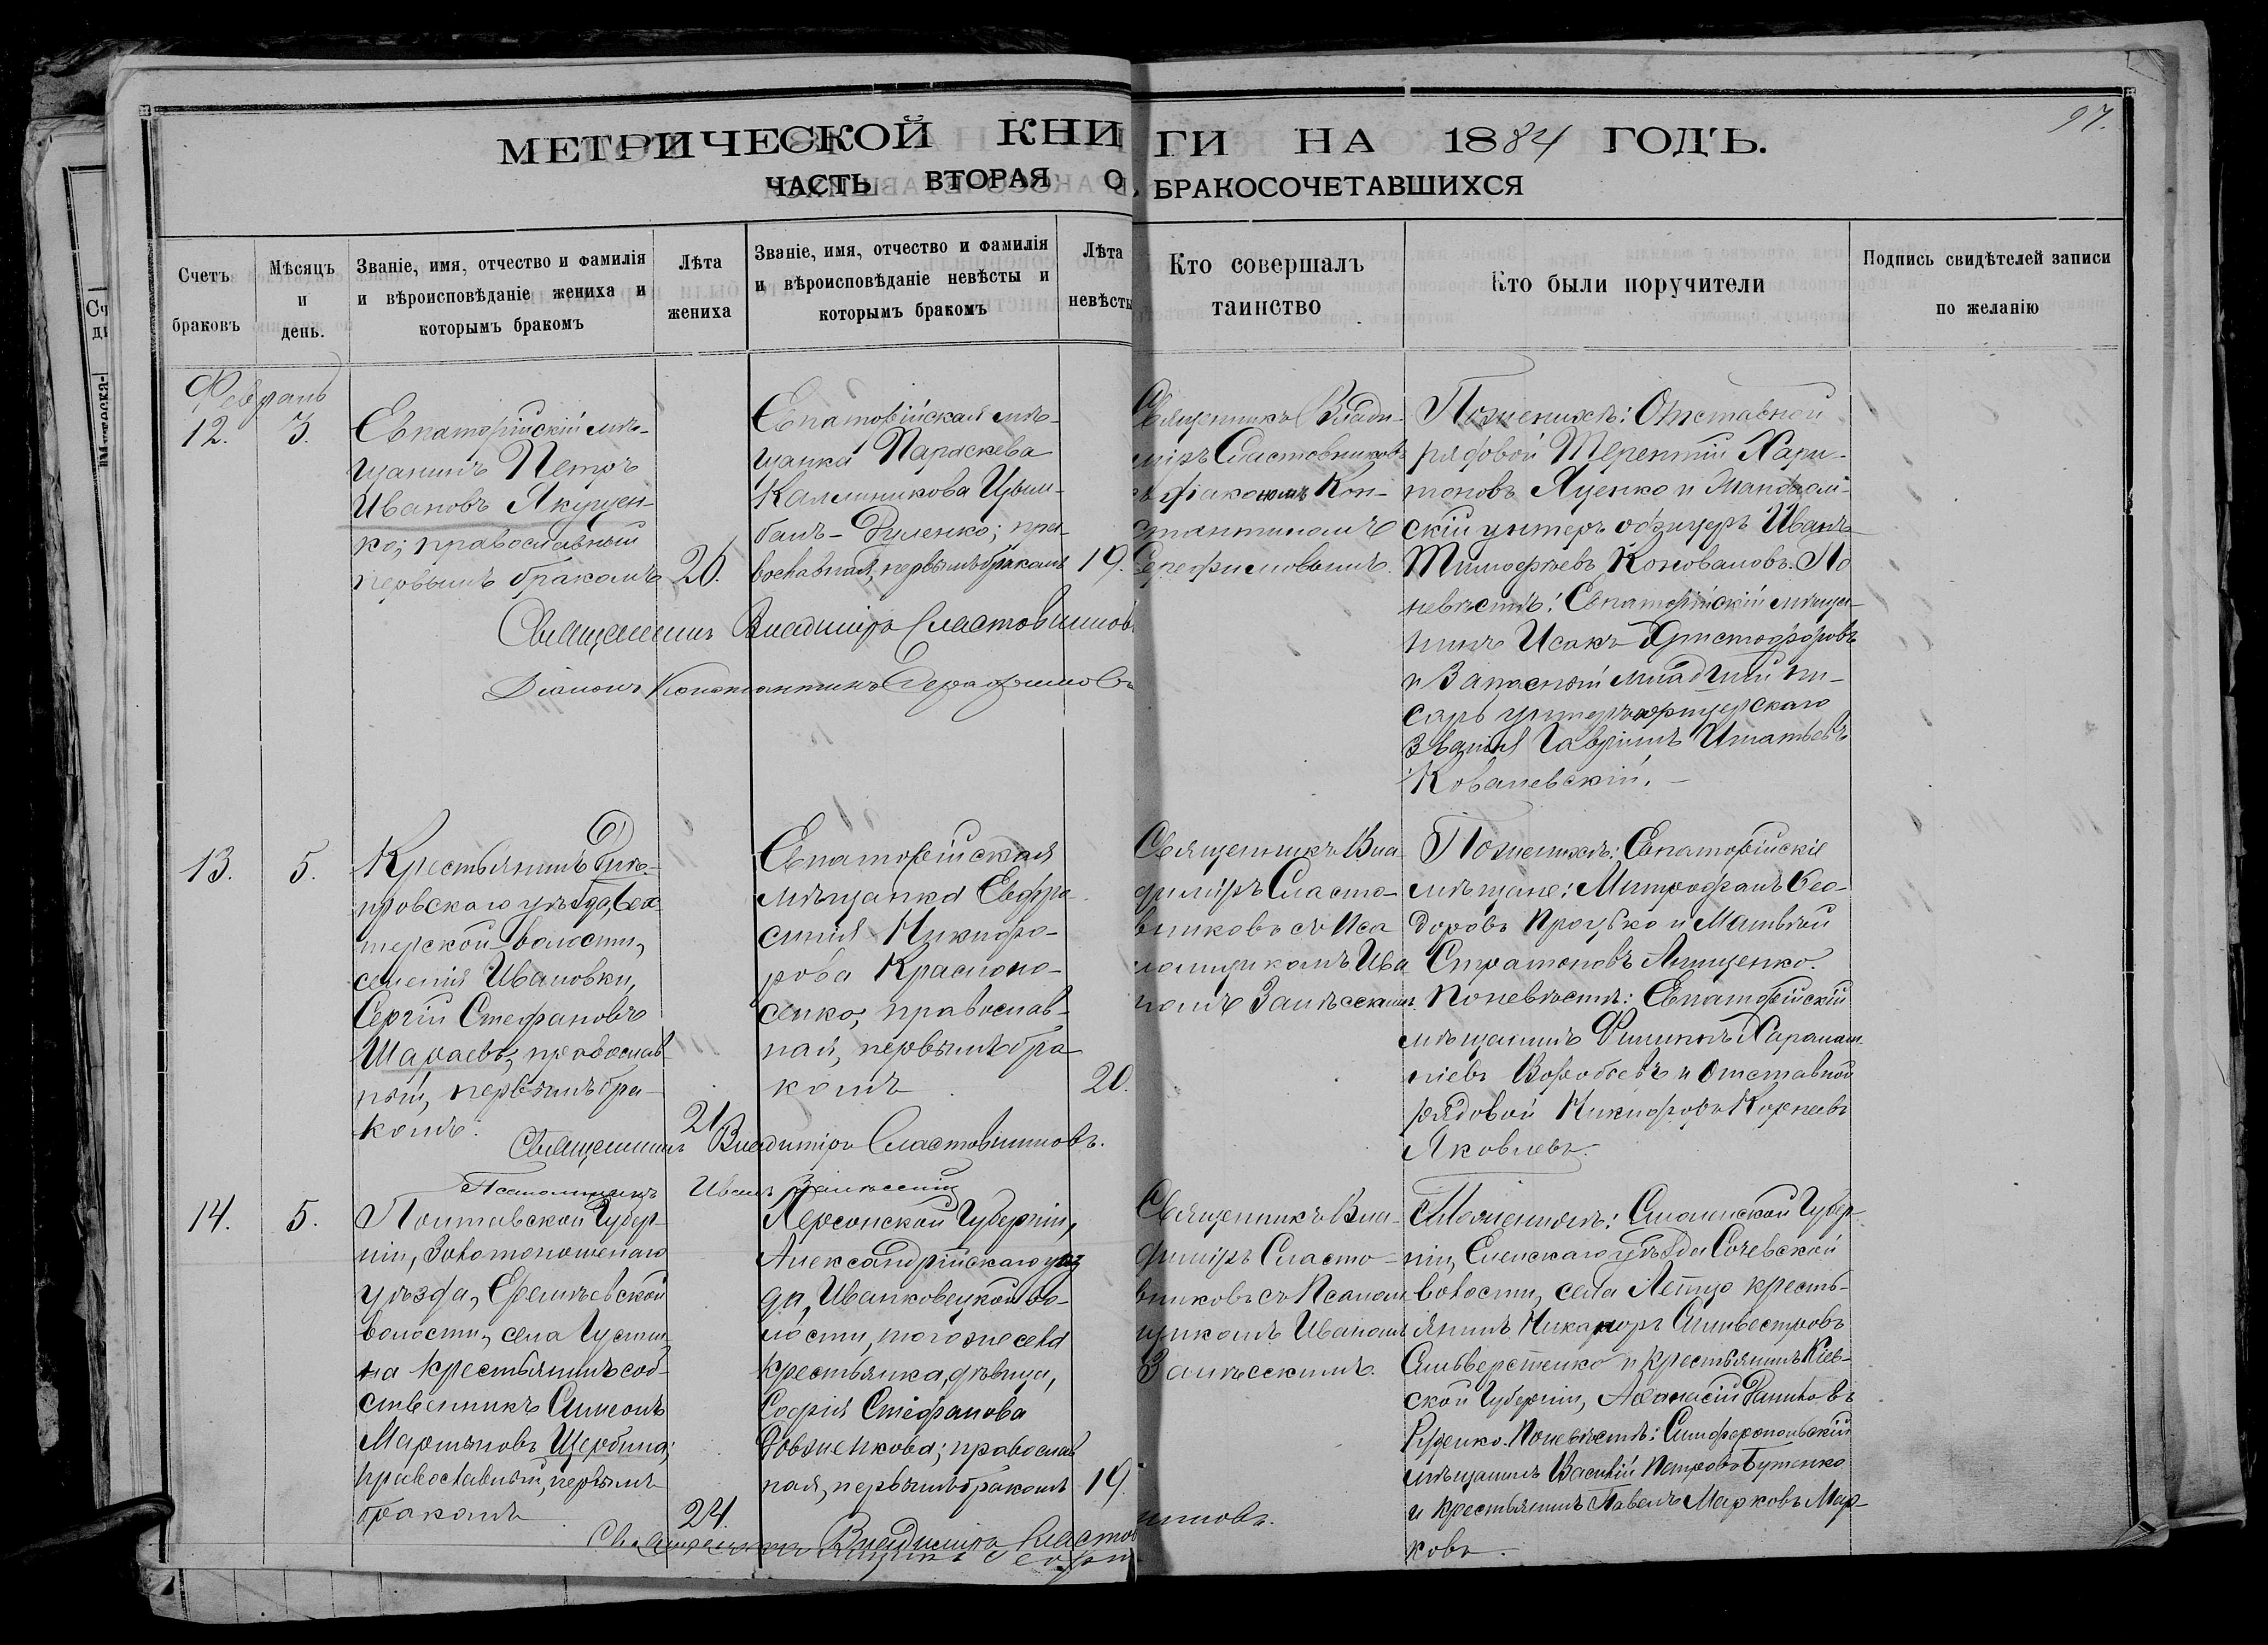 97.
МЕТРИЧЕСКОЙ КНИГИ НА 1884 ГОДЪ.
ЧАСТЬ ВТОРАЯ О БРАКОСОЧЕТАВШИХСЯ
Счетъ браковъ
Мѣсяцъ и день.
Званіе, имя, отчество и фамилія
и вѣроисповѣданіе жениха и
которымъ бракомъ
Лѣта
жениха
Званіе, имя, отчество и фамилія
и вѣроисповѣданіе невѣсты и
которымъ бракомъ
Лѣта
невѣсты
Кто совершалъ
таинство
Кто были поручители
Подпись свидѣтелей записи
по желанію
Февраль
12.
3.
Евпаторійскій мѣ-
щанинъ Петръ
Ивановъ Якущен-
ко; православный
первымъ бракомъ
26.
Евпаторійская мѣ-
щанка Параскева
Каллиникова Цым-
балъ-Диленко; пра-
вославная, первымъ бракомъ
19.
Священникъ Влади-
міръ Сластовниковъ
съ діакономъ Кон-
стантиномъ
Серафимовымъ.
По женихѣ: Отставной
рядовой Терентій Хари-
тоновъ Яценко и
скій унтеръ офицеръ Иванъ
Тимофѣевъ Коноваловъ. По
невѣстѣ: Евпаторійскій мѣща-
нинъ Исакъ Христофоровъ
и Запасный младшій пи-
сарь унтеръ-офицерскаго
званія Гавріилъ Игнатьевъ
Ковалевскій.
Священникъ Владиміръ Сластовниковъ
Діаконъ Константинъ Серафимовъ
13.
5.
Крестьянинъ Днѣ-
провскаго уѣзда, Бех-
терской волости,
селенія Ивановки,
Сергій Стефановъ
Шараевъ, православ-
ный, первымъ бра-
комъ.
21
Евпаторійская
мѣщанка Евфро-
синія Никифо-
рова Красноно-
сенко, православ-
ная, первымъ бра-
комъ
20.
Священникъ Вла-
диміръ Сласто-
вниковъ съ Пса-
ломщикомъ Ива-
номъ Залѣсскимъ.
По женихѣ: Евпаторійскіе
мѣщане: Митрофанъ Ѳео-
доровъ Процько и Матвѣй
Стратоновъ Анищенко.
По невѣстѣ: Евпаторійскій
мѣщанинъ Филиппъ Харалам-
піевъ Воробьевъ и Отставной
рядовой Никифоръ Корнеевъ
Яковлевъ.
Священникъ Владиміръ Сластовниковъ.
Псаломщикъ Иванъ Залѣсскій
14.
5.
Полтавской Губер-
ніи, Золотоношскаго
уѣзда, Еремѣевской
волости, села
на крестьянинъ соб-
ственникъ Симеонъ
Мартыновъ Щербина;
православный, первымъ
бракомъ
24.
Херсонской Губерніи,
Александрійскаго уѣз-
да, Иванковецкой во-
лости, того же села
крестьянка, дѣвица,
Софія Стефанова
Довженкова; православ-
ная, первымъ бракомъ
19.
Священникъ Вла-
диміръ Сласто-
вниковъ съ Псалом-
щикомъ Иваномъ
Залѣсскимъ.
По женихѣ: Смоленской Губер-
ніи, Еленскаго уѣзда
волости, села кресть-
янинъ Никаноръ Сильвестровъ
и крестьянинъ Кіев-
ской Губерніи, Аѳанасій Даниловъ
Руденко. По невѣстѣ: Симферопольскій
мѣщанинъ Василій Петровъ Бутенко
и крестьянинъ Павелъ Марковъ Мар-
ковъ.
Священникъ Владиміръ Сластовниковъ.